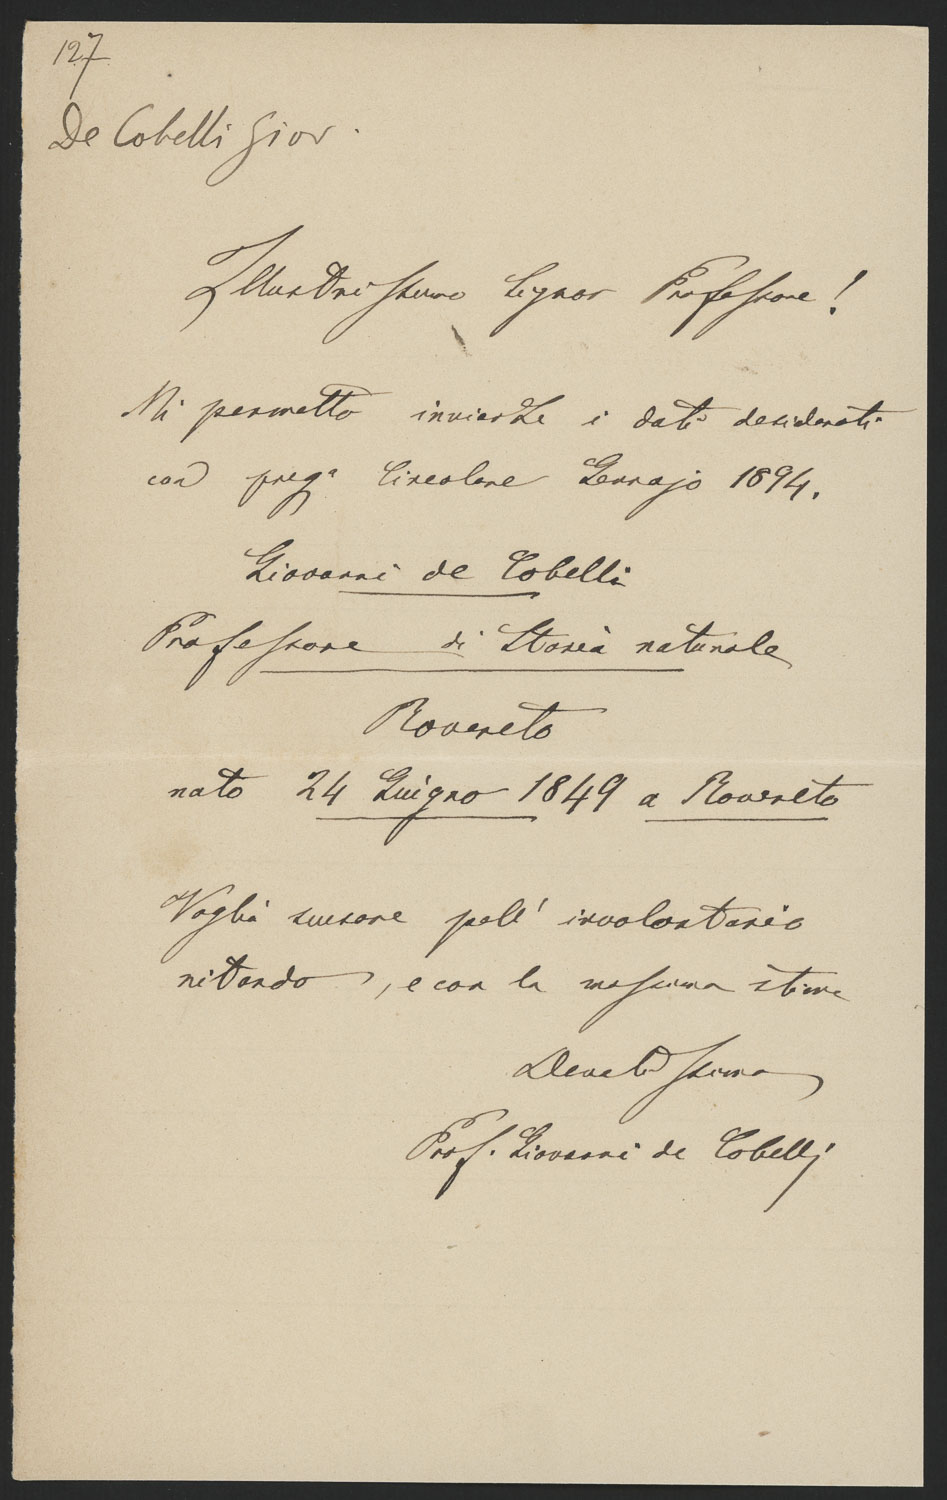 127
De Cobelli Giov.
Illustrissimo Signor Professore!
Mi permetto inviarLe i dati desiderati
con preg.ª Circolare Gennajo 1894.
Giovanni de Cobelli
Professore di Storia naturale
Rovereto
nato 24 Giugno 1849 a Rovereto
Voglia scusare pell' involontario
ritardo, e con la massima stima
Devotissimo
Prof. Giovanni de Cobelli